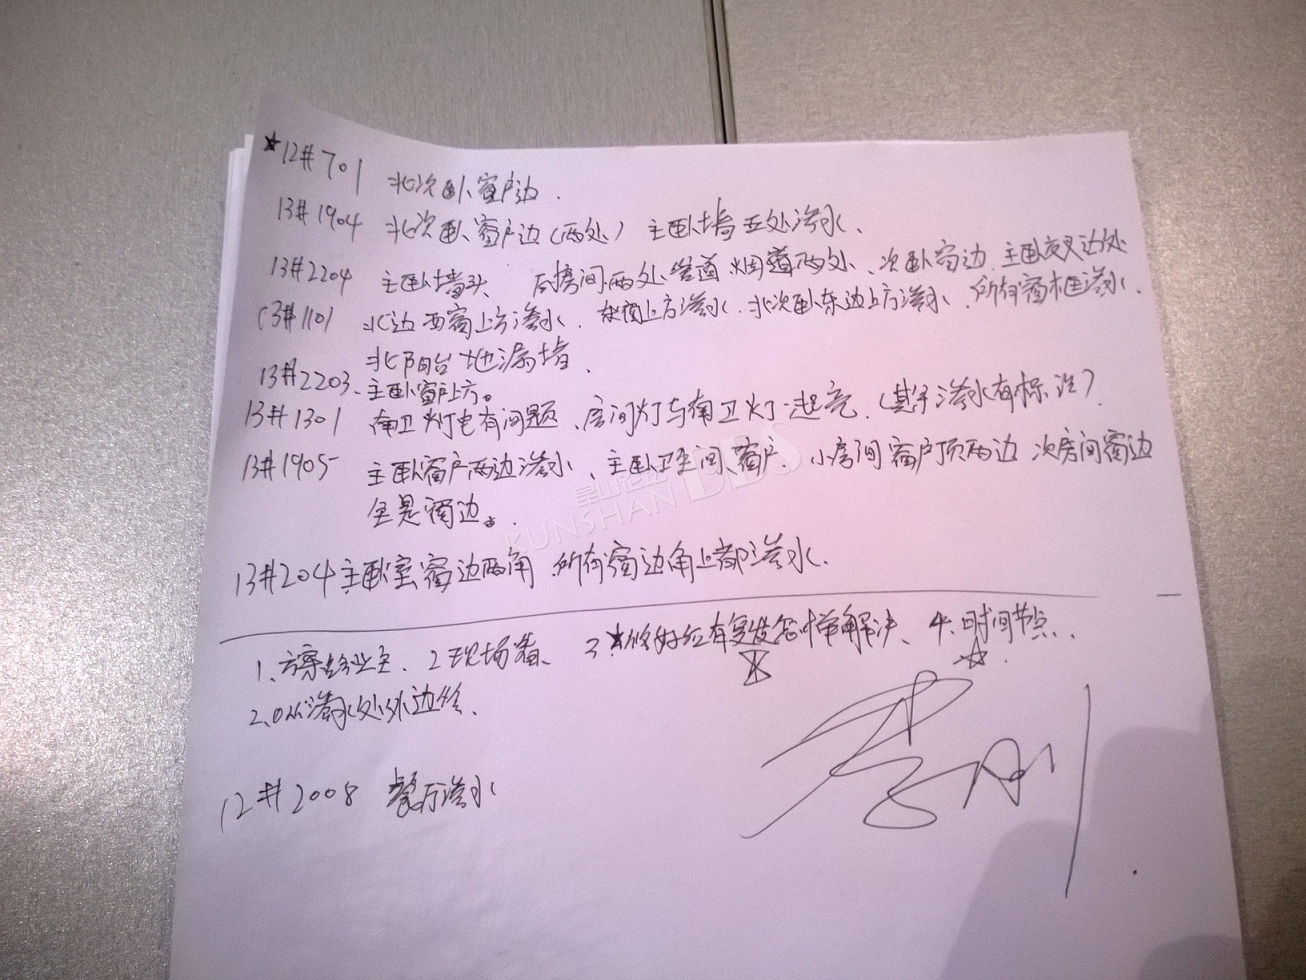 ★12#701 北次卧窗户边.
13#1904 北次卧窗户边(两处) 主卧墙五处渗水.
13#2204 主卧墙头 房间两处管道 烟道两处、次卧窗边 主卧 边处
13#1101 北边西窗上方渗水. 东窗上方渗水.北次卧东边上方渗水.所有窗框渗水.
北阳台地漏堵.
13#2203.主卧窗户上方。
13#1301 南卫灯电有问题、房间灯与南卫灯一起亮.(其于渗水有标注)
13#1905 主卧窗户两边渗水、主卧卫生间窗户 小房间窗户顶两边 次房间窗边
全是窗边。
13#204主卧室窗边两角.所有窗边角上都渗水.
1、方案给业主. 2现场看、 3★修好后有复发怎样解决、4、时间节点.
☆.
2、从渗水处外边
李刚
12#2008 餐厅渗水
昆山论坛
KUNSHAN BBS